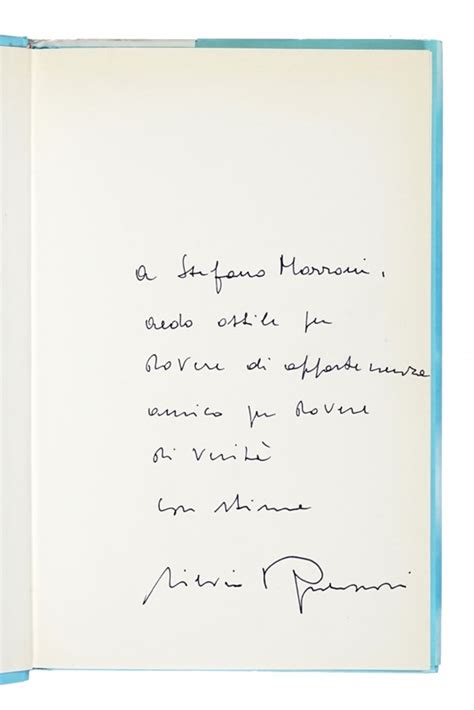 a Stefano Marroni,
aedo ostile per
dovere di appartenenza
amico per dovere
di verità
con stima
Silvio Berlusconi